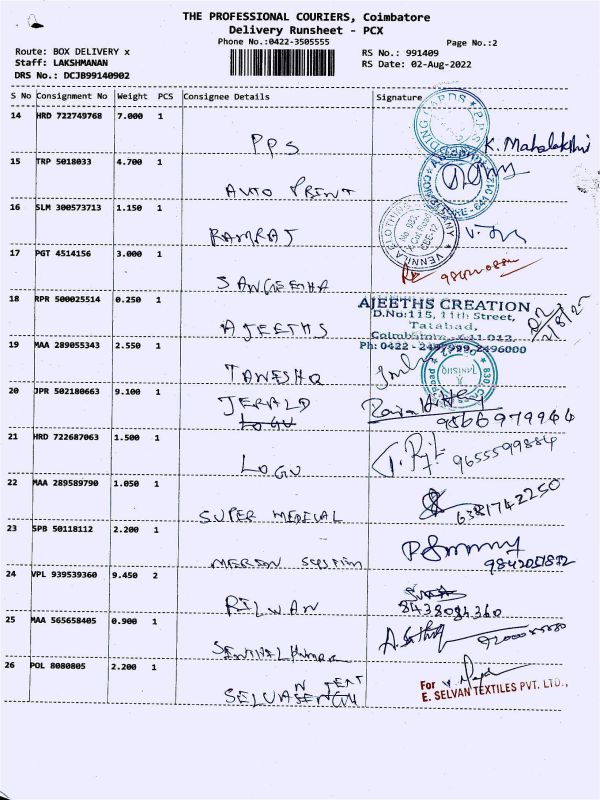 THE PROFESSIONAL COURIERS, Coimbatore
Delivery Runsheet - PCX
Phone No.:0422-3505555
Page No.:2
Route: BOX DELIVERY x
RS No.: 991409
Staff: LAKSHMANAN
RS Date: 02-Aug-2022
DRS No.: DCJB99140902
S No Consignment No Weight PCS Consignee Details Signature
14 HRD 722749768 7.000 1
PPS K. Mahalakshmi
15 TRP 5018033 4.700 1
AUTO PRINT
16 SLM 300573713 1.150 1
RAMRAJ
17 PGT 4514156 3.000 1
SANGEETHA
18 RPR 500025514 0.250 1
AJEETHS
AJEETHS CREATION
D.No:115, 11th Street,
Tatabad,
19 MAA 289055343 2.550 1
TANISHQ
20 JPR 502180663 9.100 1
JERALD
LOGU
9566979944
21 HRD 722687063 1.500 1
LOGU
9655599884
22 MAA 289589790 1.050 1
SUPER MEDICAL
6381742250
23 SPB 50118112 2.200 1
24 VPL 939539360 9.450 2
RILWAN
8438084360
25 MAA 565658405 0.900 1
26 POL 8080805 2.200 1
For
E. SELVAN TEXTILES PVT. LTD.,